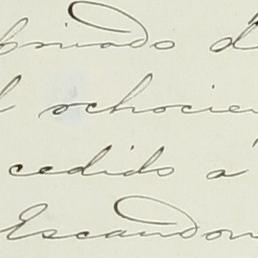 Privado d
l ochocien
cedido a
Escandon